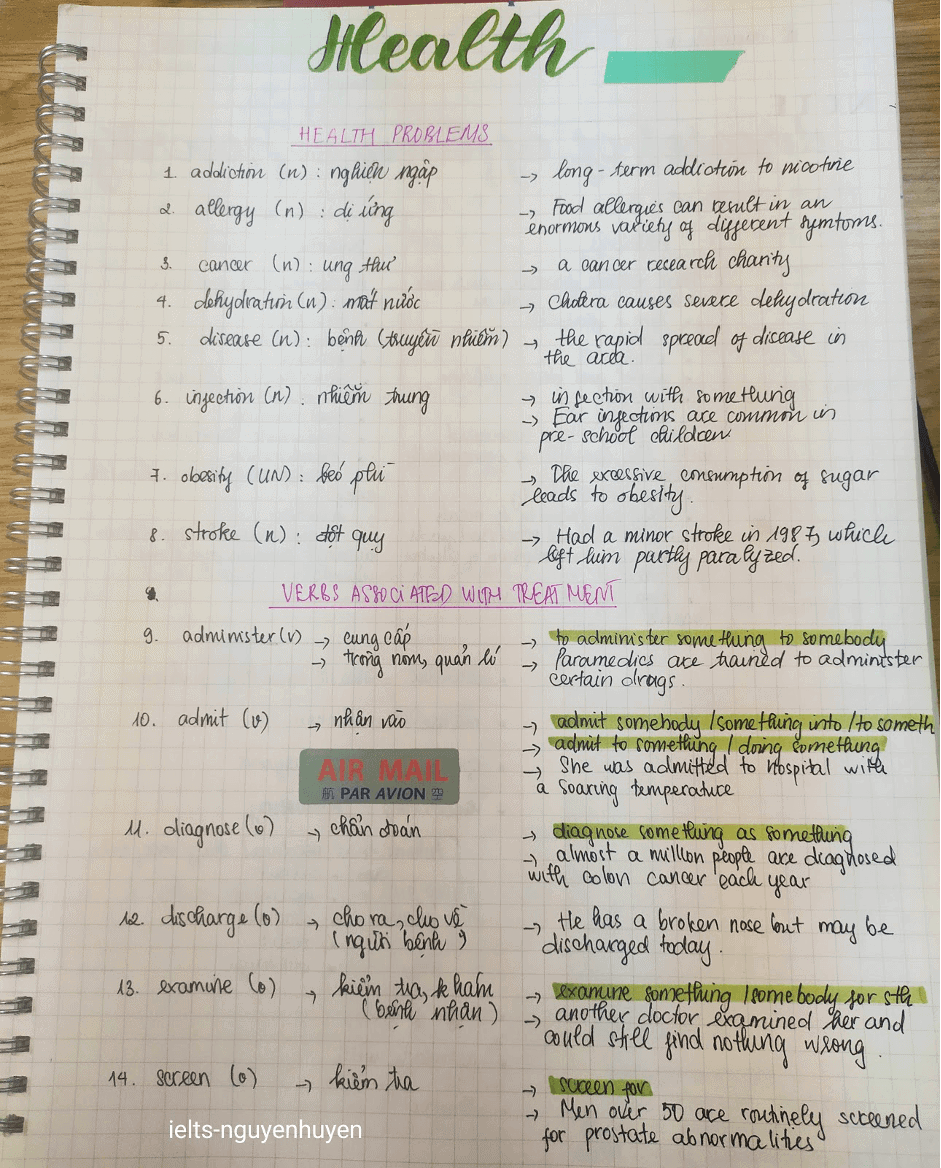 Health
HEALTH PROBLEMS
1. addiction (n) : nghiện ngập → long-term addiction to nicotine
2. allergy (n) : dị ứng → Food allergies can result in an
enormous variety of different symtoms.
3. cancer (n) : ung thư → a cancer research charity
4. dehydration (n) : mất nước → Cholera causes severe dehydration
5. disease (n) : bệnh (truyền nhiễm) → the rapid spread of disease in
the area.
6. infection (n) . nhiễm trung → infection with something
→ Ear infections are common in
pre-school children
7. obesity (UN) : béo phì → The excessive consumption of sugar
leads to obesity.
8. stroke (n) : đột quỵ → Had a minor stroke in 1987, which
left him partly paralyzed.
VERBS ASSOCIATED WITH TREATMENT
9. administer (v) → cung cấp → to administer something to somebody
→ trông nom, quản lí → Paramedics are trained to administer
certain drugs.
10. admit (v) → nhận vào → admit somebody / something into / to someth
→ admit to something / doing something
AIR MAIL → She was admitted to hospital with
航 PAR AVION 空 a soaring temperature
11. diagnose (v) → chẩn đoán → diagnose something as something
→ almost a million people are diagnosed
with colon cancer each year
12. discharge (v) → cho ra, cho về → He has a broken nose but may be
(người bệnh) discharged today.
13. examine (v) → kiểm tra, khám → examine something / somebody for sth
(bệnh nhân) → another doctor examined her and
could still find nothing wrong.
14. screen (v) → kiểm tra → screen for
→ Men over 50 are routinely screened
for prostate abnormalities
ielts-nguyenhuyen